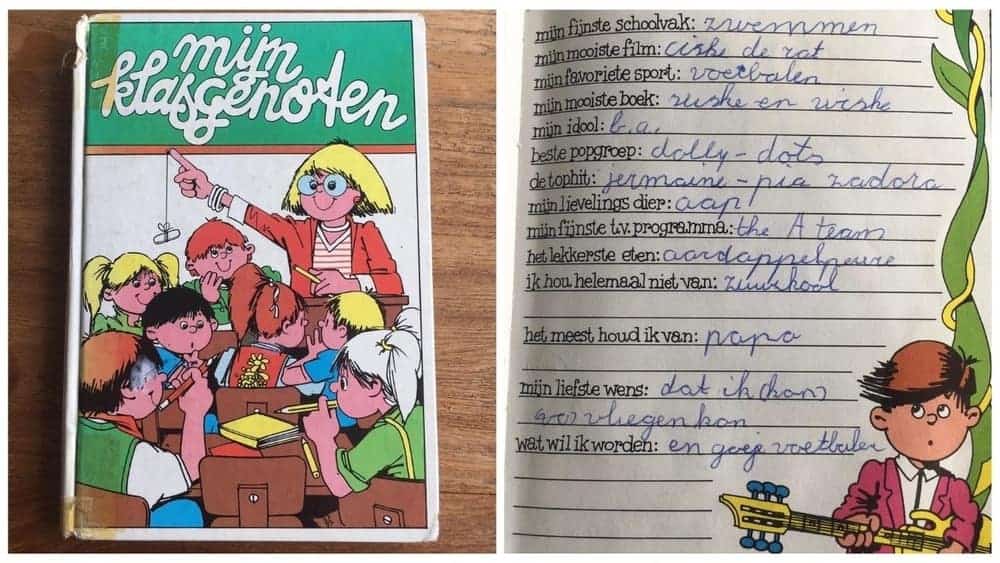 mijn
klasgenoten
mijn fijnste schoolvak: zwemmen
mijn mooiste film: ciske de rat
mijn favoriete sport: voetbalen
mijn mooiste boek: suske en wiske
mijn idool: b.a.
beste popgroep: dolly-dots
de tophit: jermaine-pia zadora
mijn lievelings dier: aap
mijn fijnste t.v. programma: the A team
het lekkerste eten: aardappelpeure
ik hou helemaal niet van: zuurkool
het meest houd ik van: papa
mijn liefste wens: dat ik (kon)
vliegen kon
wat wil ik worden: en goeje voetbaler